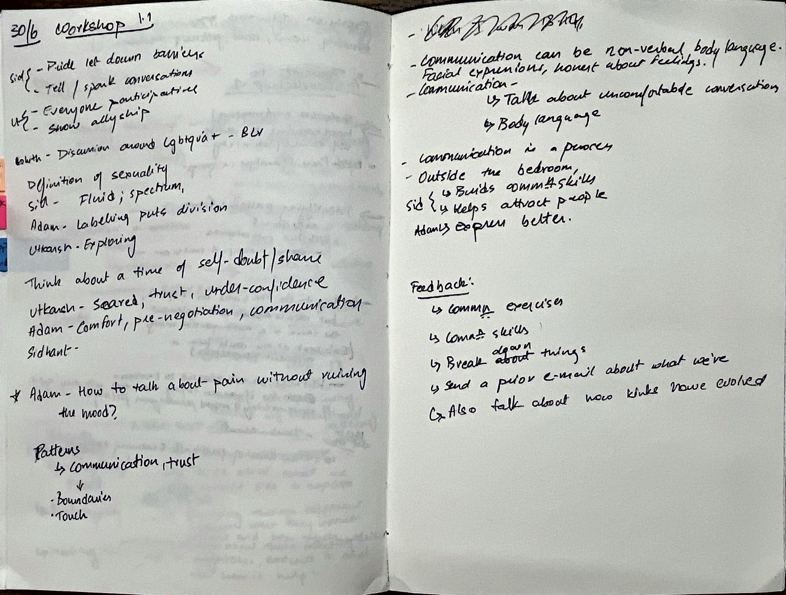 30/6 Workshop 1.1
Sid { - Pride let down barriers
- Tell / spark conversations
Ut { - Everyone participative
- Show allyship
- Discussion around Lgbtqia+ -
Definition of sexuality
Sid - Fluid; spectrum,
Adam - Labelling puts division
Utkarsh - Exploring
Think about a time of self-doubt/shame
Utkarsh - Scared, trust, under-confidence
Adam - Comfort, pre-negotiation, communication
Sidhant -
* Adam - How to talk about pain without ruining
the mood?
Patterns
↳ communication, trust
↓
· Boundaries
· Touch
- Communication can be non-verbal, body language.
Facial expressions, honest about feelings.
- Communication -
↳ Talk about uncomfortable conversation
↳ Body language
- Communication is a process
- Outside the bedroom,
Sid { ↳ Builds commn skills
↳ Helps attract people
Adam ↳ express better.
Feedback:
↳ commn exercises
↳ commn skills
↳ Break down things
↳ Send a prior e-mail about what we've
↳ Also talk about how kinks have evolved